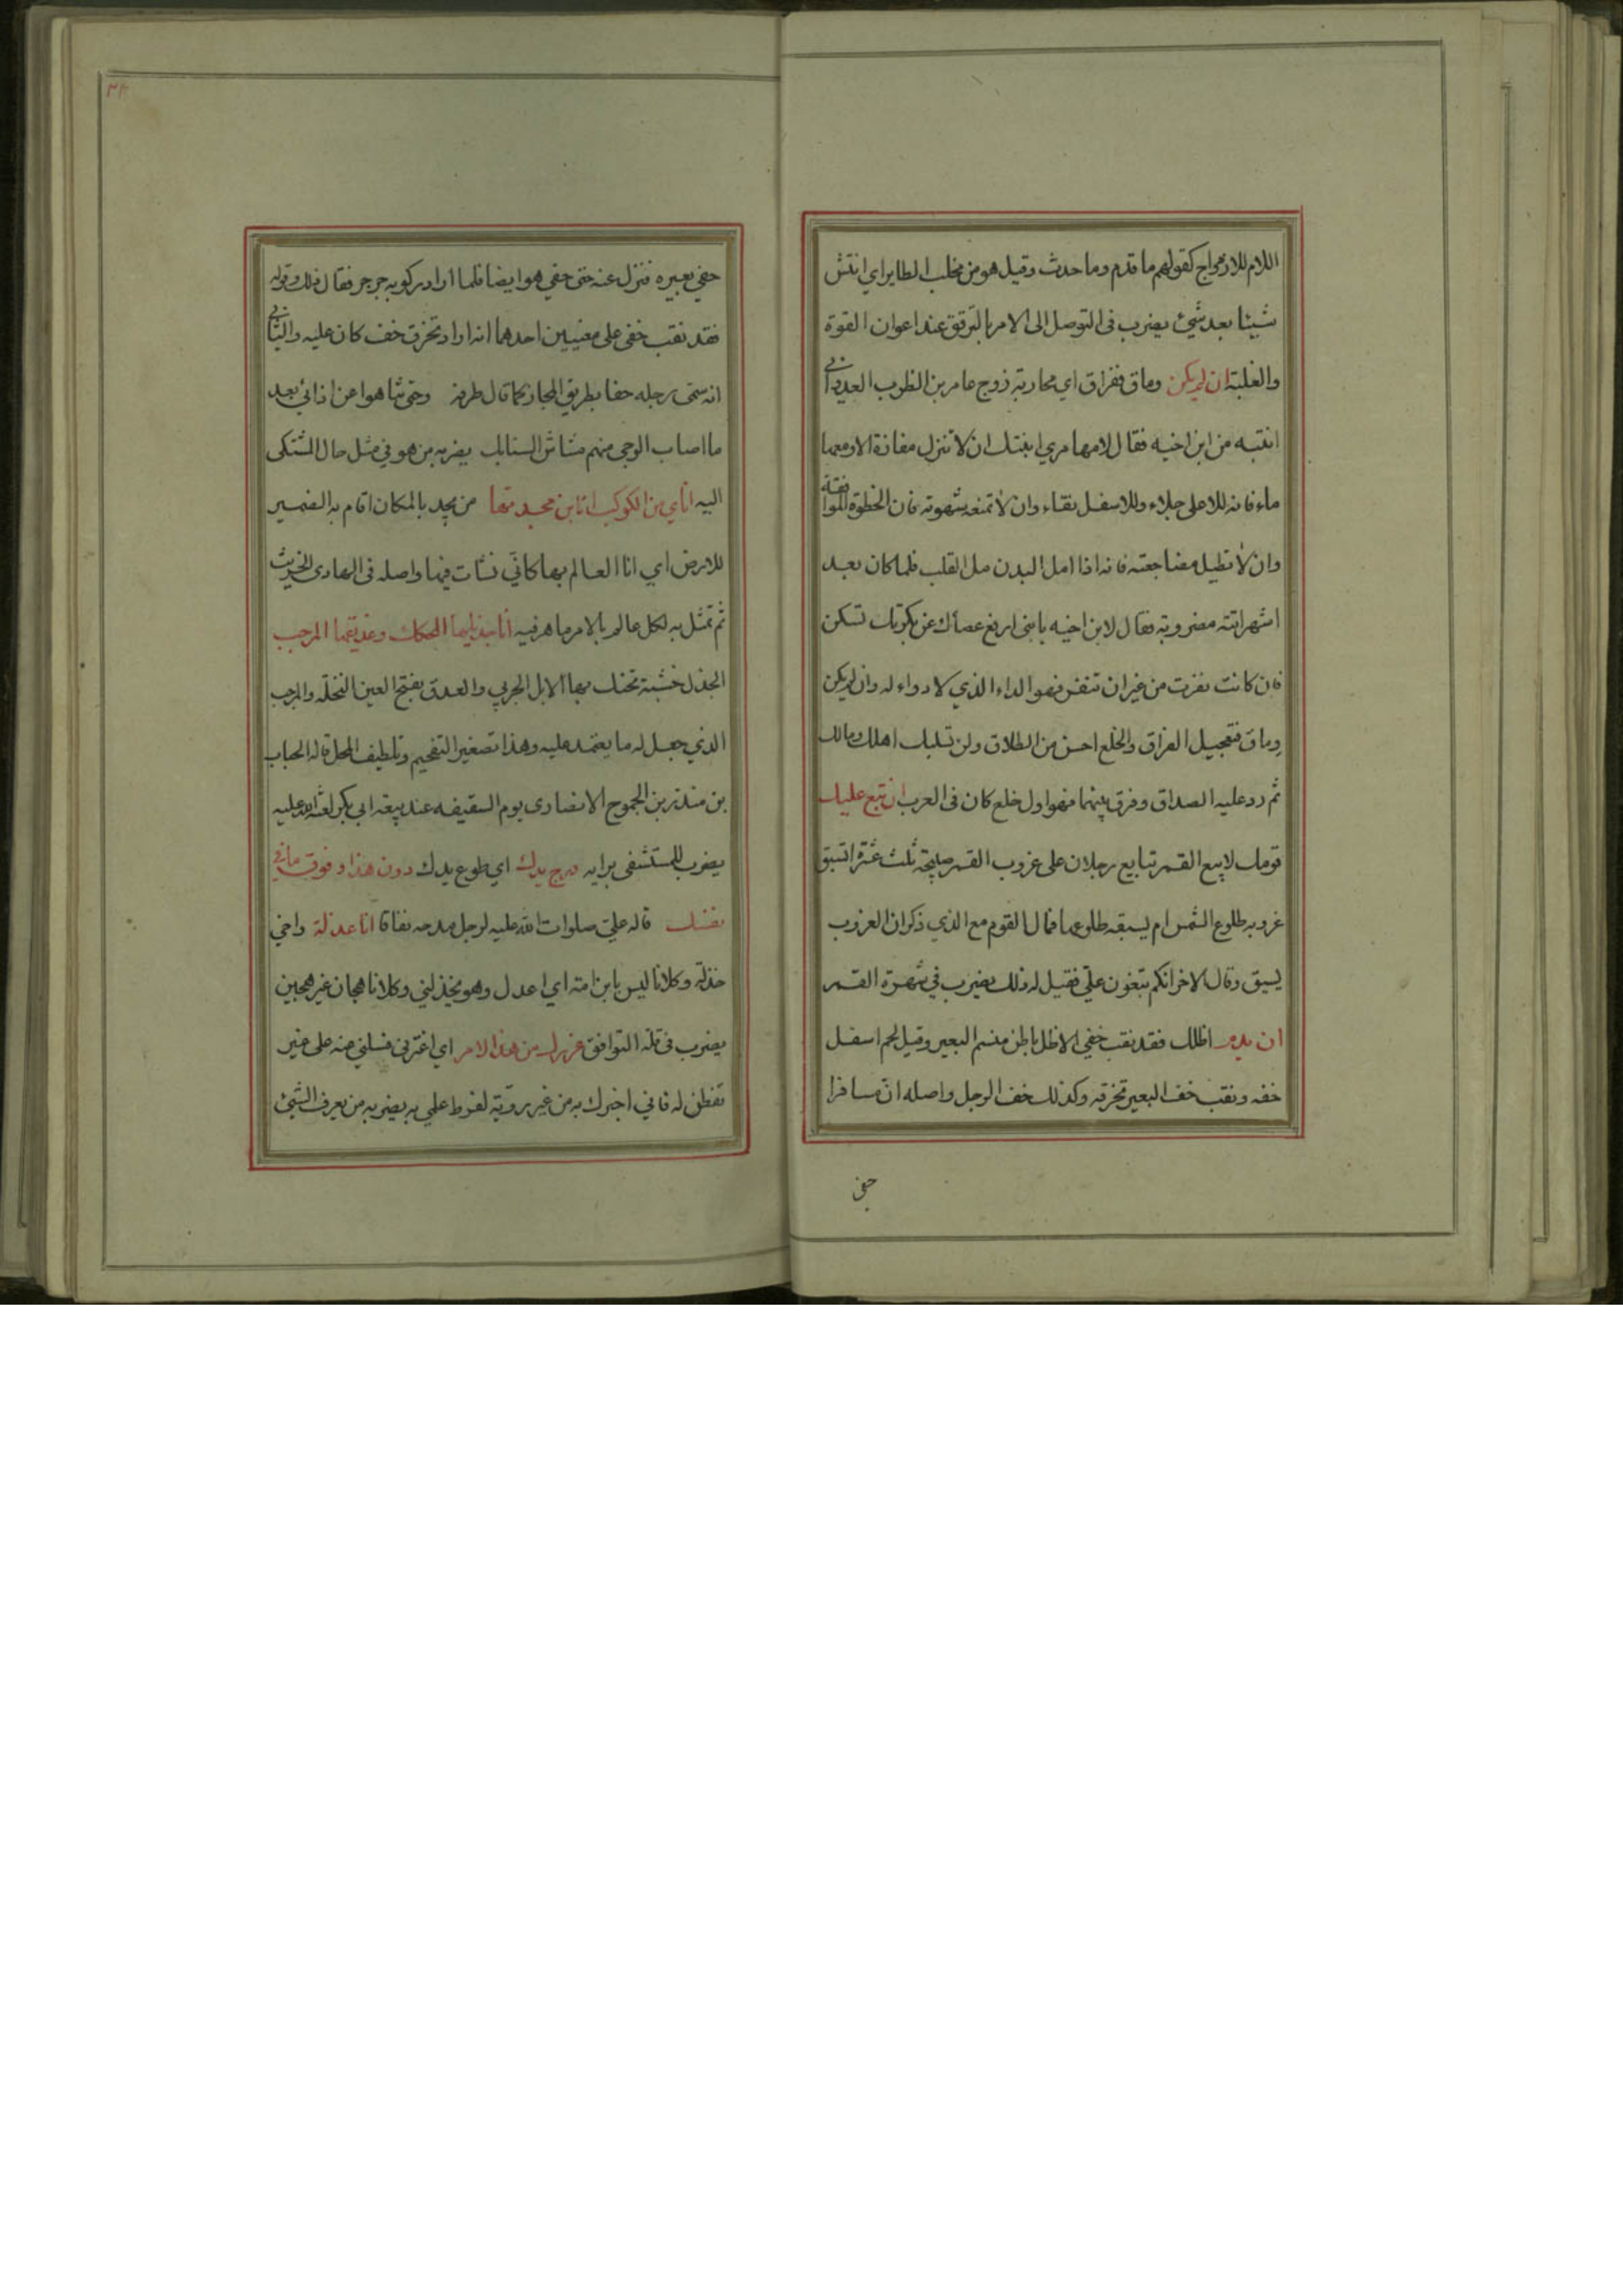 اللام للازدواج كقولهم ما قدم وما حدث وقيل هو من مخلب الطاير اي انتش
شيئا بعد شيئ يضرب فى التوصل الى الامر بالترفق عند اعوان القوة
والغلبة ان لم يكن وماق ففراق اي محاربة زوج عامر بن الظرب العدواني
ابنته من ابن اخيه فقال لامها مري ابنتك ان لا تنزل مفازة الا ومعها
ماء فانه للاعلى جلاء وللاسفل نقاء وان لا تمنعه شهوته فان الخطوة الموافقة
وان لا تطيل مضاجعته فانه اذا امل البدن مل القلب فلما كان بعد
اشهر اتته مضروبة فقال لابن اخيه يا بنى ارفع عصاك عن بكرتك تسكن
فان كانت نفرت من غير ان تنفر فهو الداء الذي لا دواء له وان لم يكن
وماق فتعجيل الفراق والخلع احسن من الطلاق ولن تسلبك اهلك ومالك
ثم رد عليه الصداق وفرق بينهما فهو اول خلع كان فى العرب ان تبع عليك
قومك لا يبع القمر تبايع رجلان على غروب القمر صبيحة ثلث عشرة ايسبق
غروبه طلوع الشمس ام يسبقه طلوعها فمال القوم مع الذي ذكر ان الغروب
يسبق وقال الاخر انكم تبغون علىّ فقيل له ذلك يضرب في شهرة القمر
ان يدم اظلك فقد نقب خفي الاظل باطن منسم البعير وقيل لحم اسفل
خفه ونقب خف البعير تخرقه وكذلك خف الرجل واصله ان مسافرا
حفى
٢٣
حفي بعيره فنزل عنه حتى حفي هو ايضا فلما اراد ركوبه جرجر فقال ذلك وقوله
فقد نقب خفى على معنيين احدهما انه اراد تخرق خف كان عليه والثاني
انه سمى رجله خفا بطريق المجاز كما قال طرفه
ما اصاب الوجى منهم مشاش السنابك يضربه من هو في مثل حال المشتكى
اليه اناي من الكوكب انا ابن بجدتها من بجد بالمكان اقام به الضمير
للارض اي انا العالم بها كاني نشأت فيها واصله فى الهادى الخريت
ثم تمثل به لكل عالم بالامر ماهر فيه انا جذيلها المحكك وعذيقها المرجب
الجذل خشبة تحتك بها الابل الجربي والعذق بفتح العين النخلة والمرجب
الذي جعل له ما يعتمد عليه وهذا تصغير التفخيم وتلطيف المحل قاله الحباب
بن منذر بن الجموح الانصارى يوم السقيفه عند بيعة ابي بكر لعنة الله عليه
يضرب للمستشفى برايه درج يدك اي طوع يدك دون هذا وفوق ما في
نفسك قاله علىّ صلوات الله عليه لرجل مدحه نفاقا انا عذلة واخي
خذلة وكلانا ليس بابن امة اي اعدل وهو يخذلني وكلانا هجان غير هجين
يضرب فى قلة التوافق غريرك من هذا الامر اي اغترني فسلني منه على غير
تفطن له فاني اخبرك به من غير روية لفرط علمي به يضربه من يعرف الشيئ